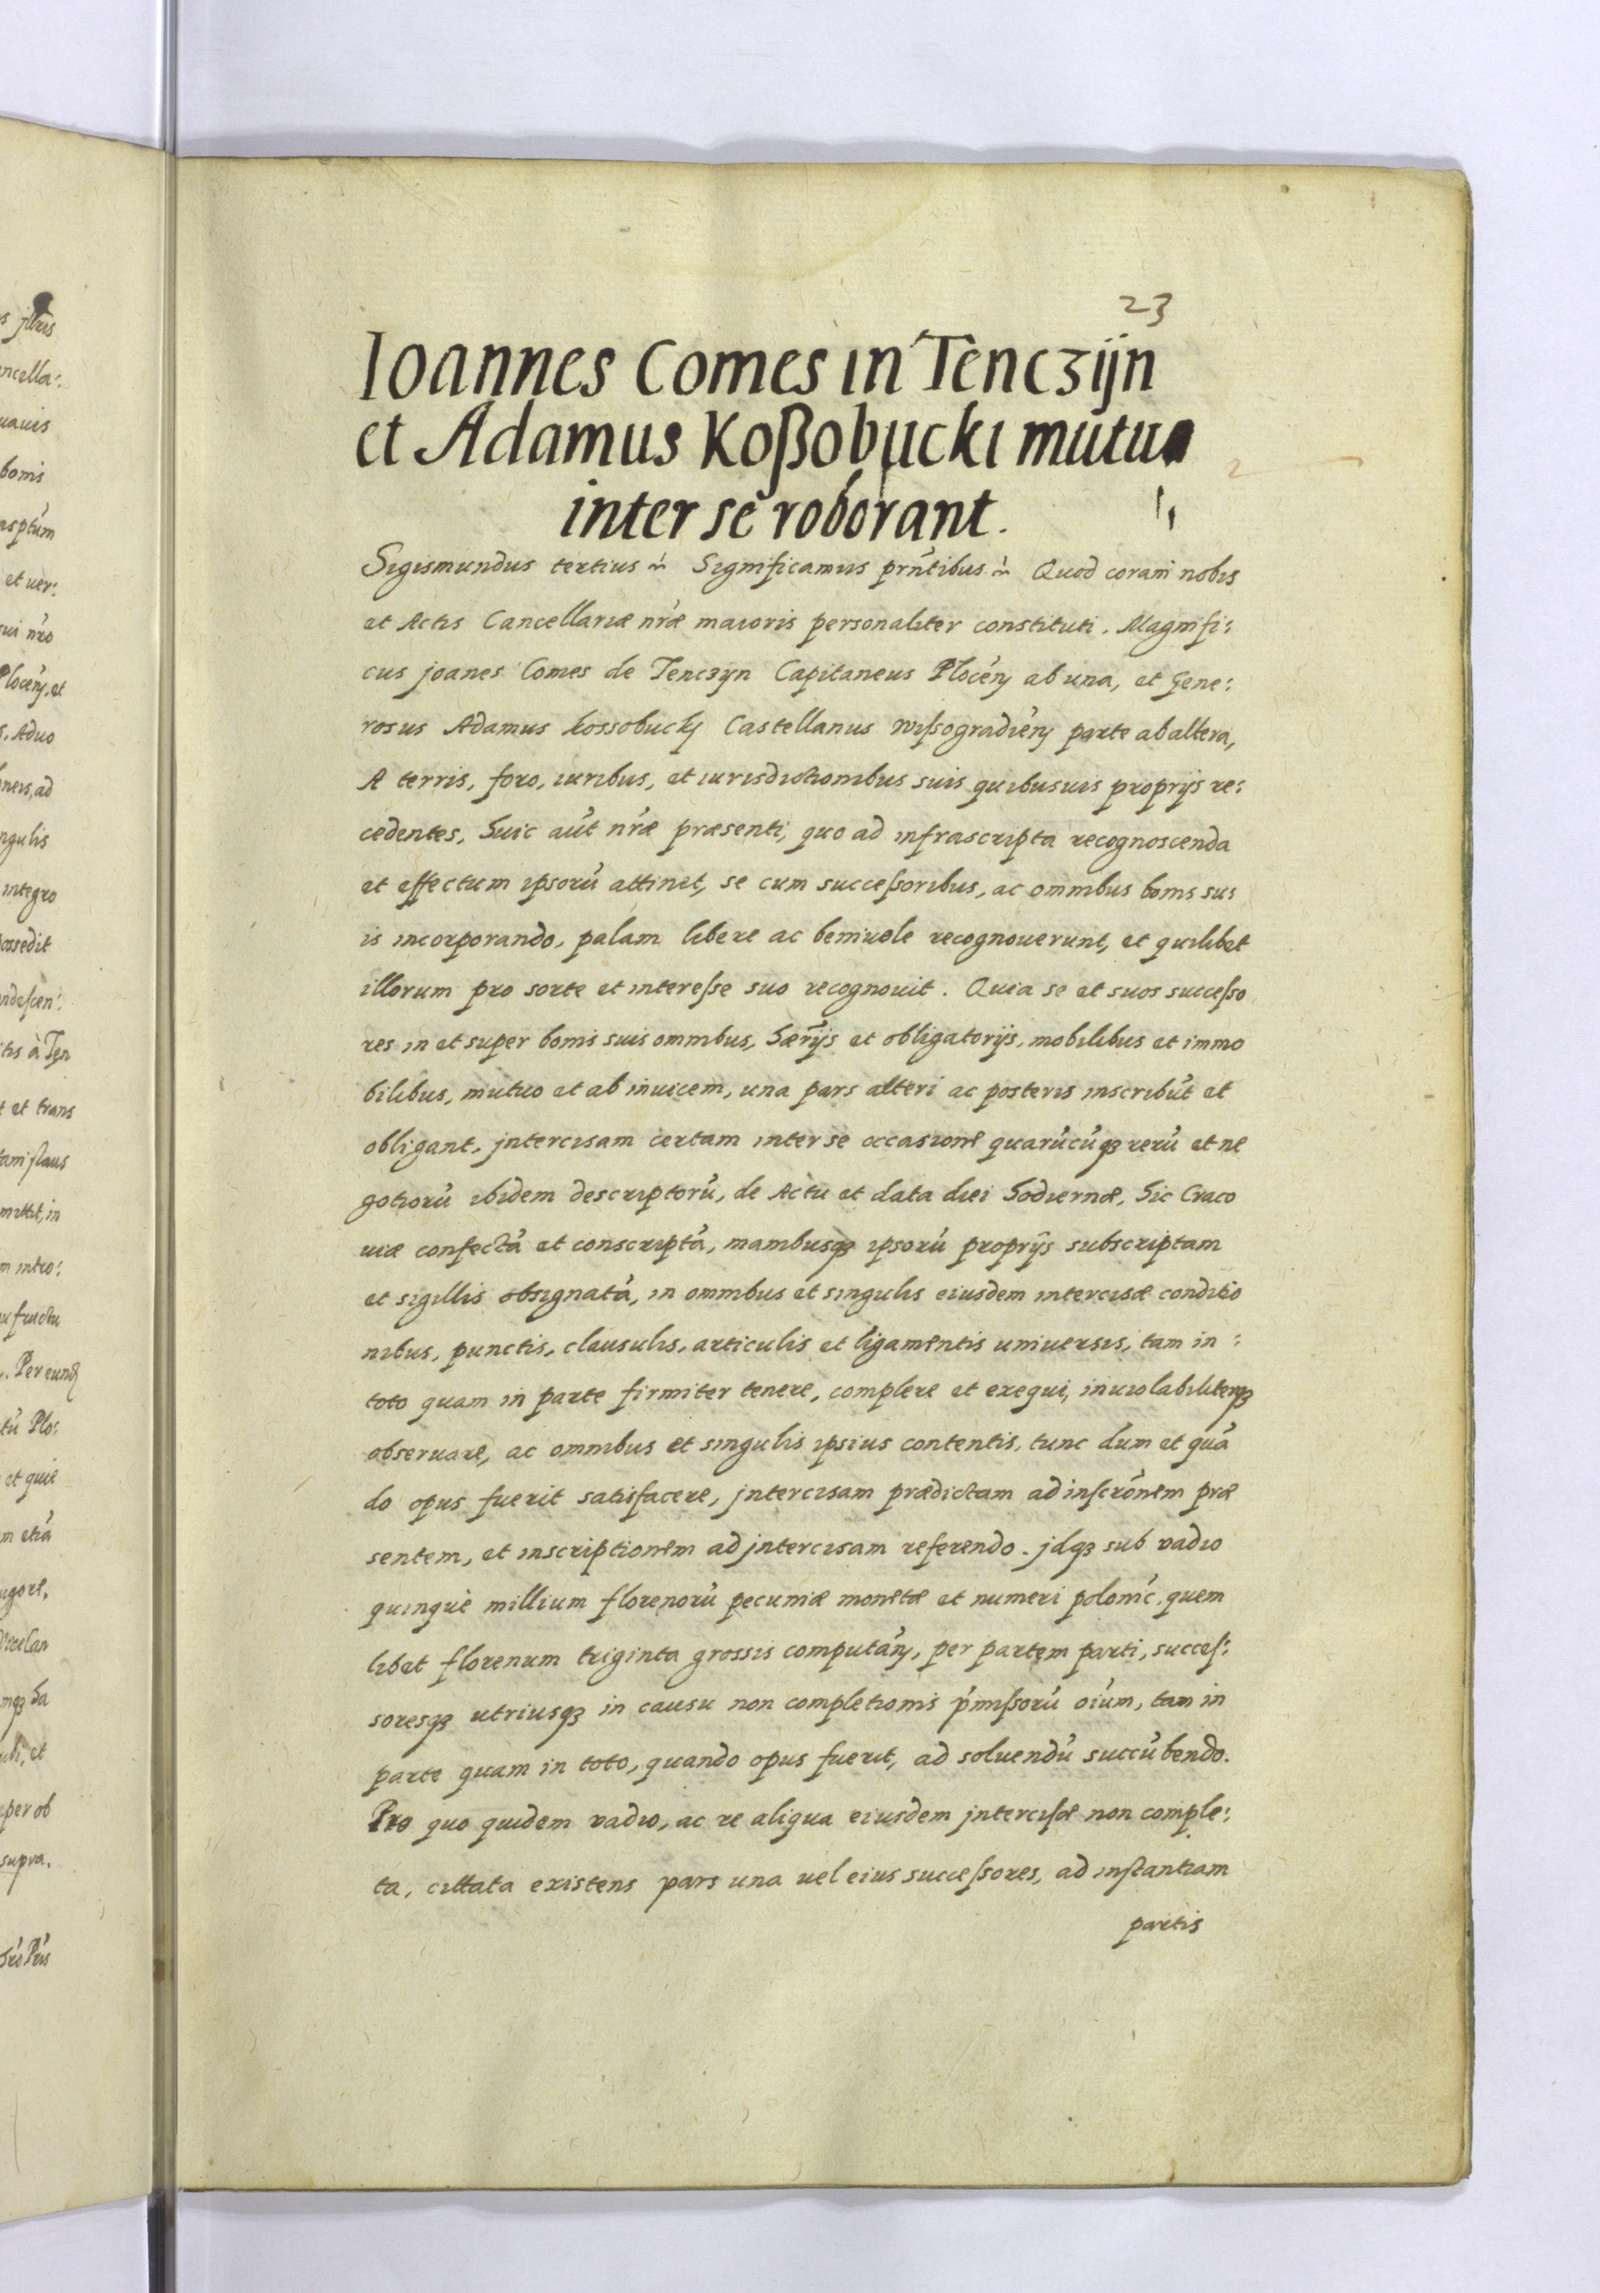 23
Ioannes Comes in Tenczijn
et Adamus Koßobucki mutua
inter se roborant.
Sigismundus tertius Significamus prñtibus Quod coram nobis
et Actis Cancellariæ nr̃æ maioris personaliter constituti. Magnifi:
cus joanes Comes de Tenczyn Capitaneus Plocen̄ ab una, et Gene:
rosus Adamus kossobuckj Castellanus wissogradien̄ parte ab altera,
A terris, foro, iuribus, et iurisdictionibus suis quibusuis proprijs re:
cedentes, huic aūt nr̃æ præsenti, quo ad infrascripta recognoscenda
et effectum ipsorū attinet, se cum successoribus, ac omnibus bonis su:
is incorporando, palam libere ac beniuole recognouerunt, et quilibet
illorum pro sorte et interesse suo recognouit. Quia se et suos successo
res in et super bonis suis omnibus, hær̃ijs et obligatorijs, mobilibus et immo
bilibus, mutuo et ab inuicem, una pars alteri ac posteris inscribūt et
obligant, jntercisam certam inter se occasionē quarūcūqz rerū et ne
gotiorū ibidem descriptorū, de Actu et data diei hodiernæ, hic Craco
uiæ confectā et conscriptā, manibusqz ipsorū proprijs subscriptam
et sigillis obsignatā, in omnibus et singulis eiusdem intercisæ conditio
nibus, punctis, clausulis, articulis et ligamentis uniuersis, tam in:
toto quam in parte firmiter tenere, complere et exequi, inuiolabiliterqz
obseruare, ac omnibus et singulis ipsius contentis, tunc dum et quā
do opus fuerit satisfacere, jntercisam prædictam ad inscrōnem præ
sentem, et inscriptionem ad jntercisam referendo. jdqz sub vadio
quinque millium florenorū pecuniæ monetæ et numeri polonic̄. quem
libet florenum triginta grossis computan̄, per partem parti, succes:
soresqz utriusqz in causu non completionis p̄missorū oīum, tam in
parte quam in toto, quando opus fuerit, ad soluendū succūbendo.
Pro quo quidem vadio, ac re aliqua eiusdem jntercisæ non comple:
ta, cittata existens pars una uel eius successores, ad instantiam
partis